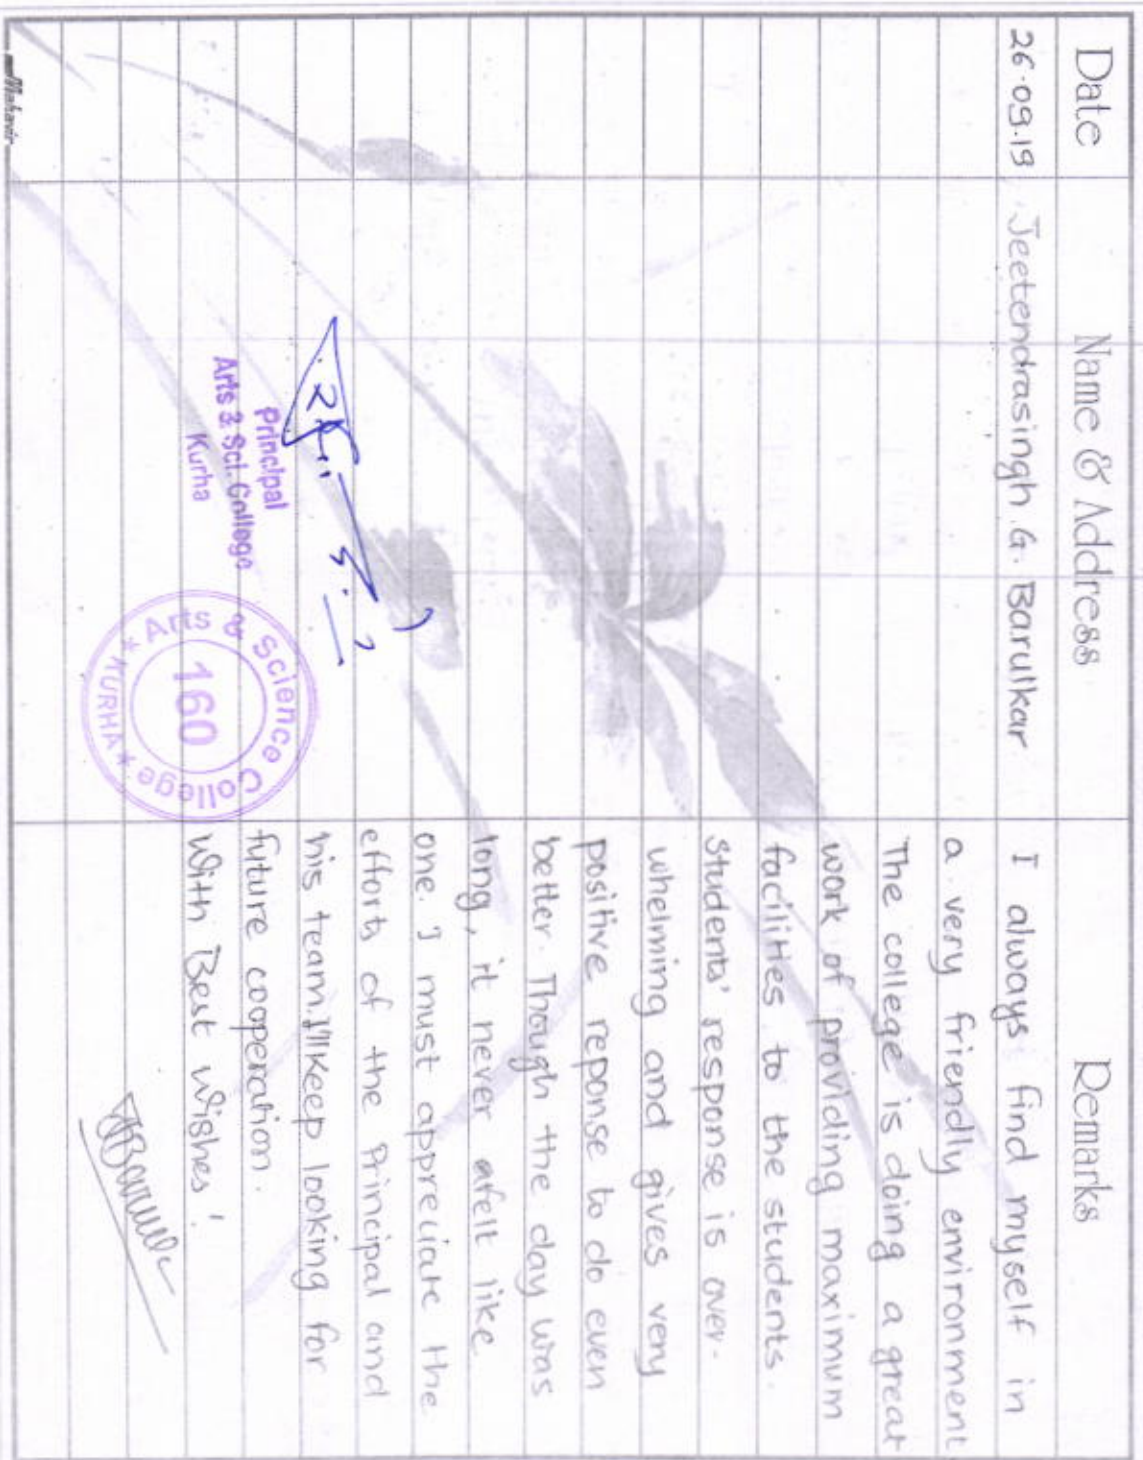 Date Name & Address Remarks
26.09.19 Jeetendrasingh G. Barulkar I always find myself in
a very friendly environment
The college is doing a great
work of providing maximum
facilities to the students.
Students' response is over-
whelming and gives very
positive reponse to do even
better. Though the day was
long, it never afelt like
one. I must appreciate the
efforts of the Principal and
his team. I'll keep looking for
future cooperation.
With Best Wishes!
Principal
Arts & Sci. College
Kurha
Arts & Science College
★ KURHA ★
160
Mahavir